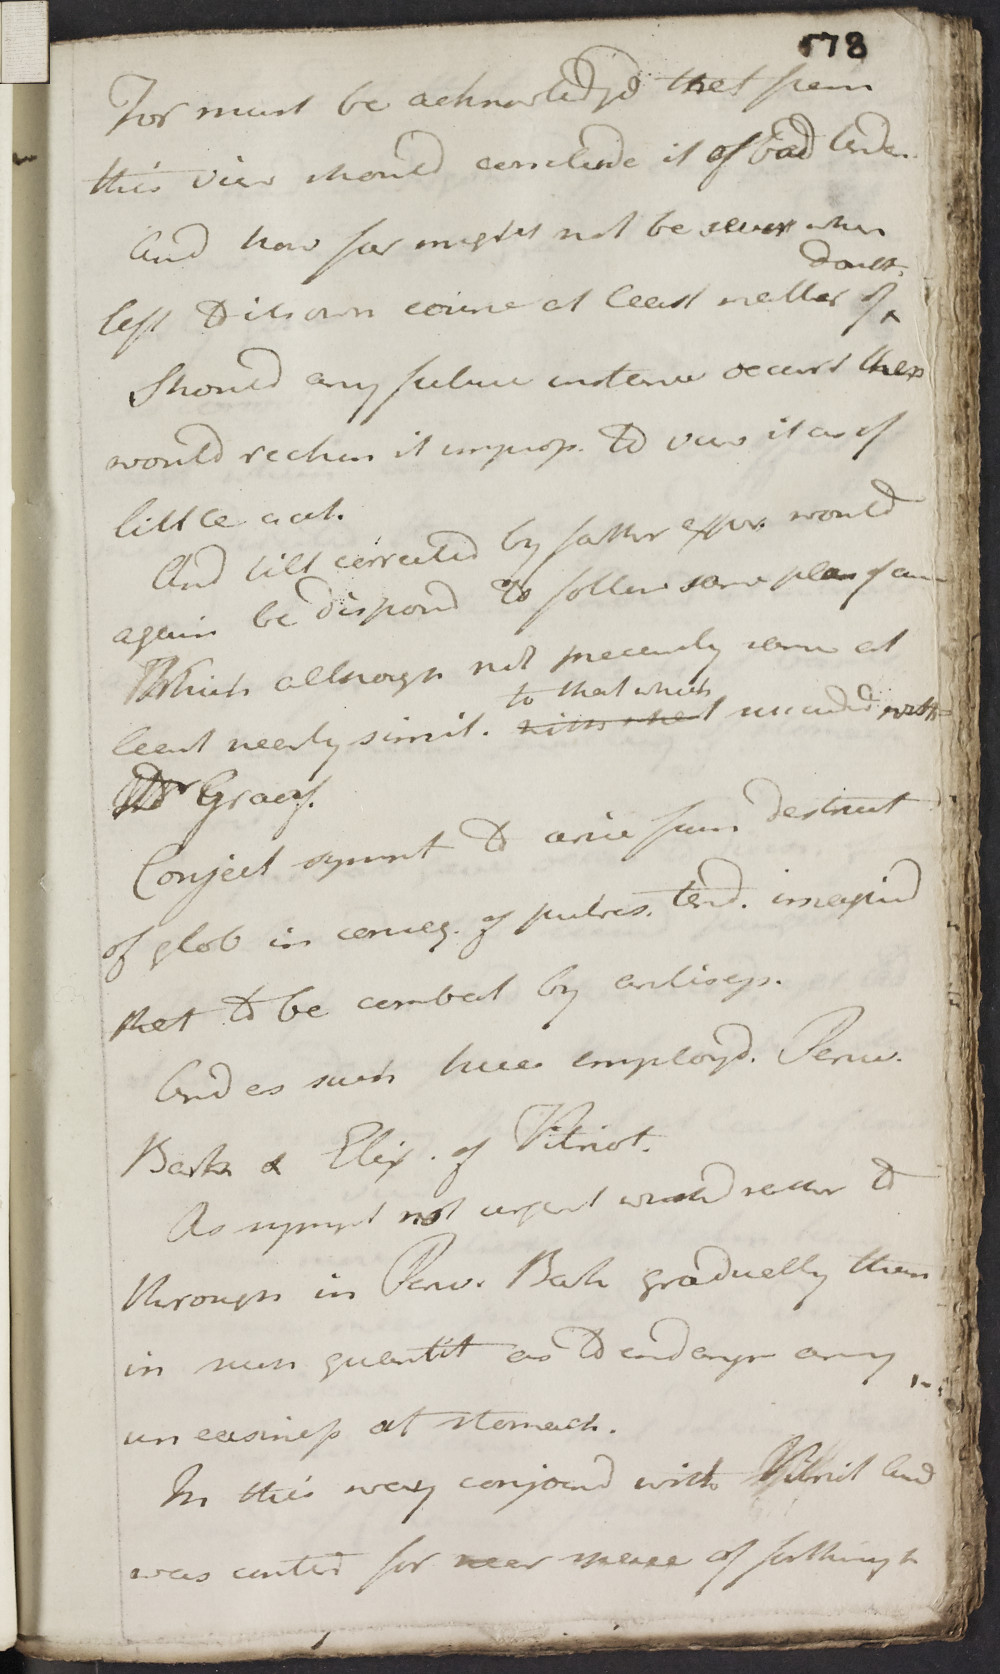 178
For must be acknowledgd that from
this view should conclude it of bad tende.
And how far might not be severe when
doubt.
left to its own course at least matter of
Should any future instance occurr then
would rechen it improp. to view it as of
little act.
And till corrected by farther exper. would
again be disposd to follow same plan of
Which although not precisely same at
to that which
least nearly simil. with
Mr Gray.
Conject sympt to arise from destruct
of glob in conseq. of putres. tend. imagind
that to be combat by antisep.
And as such hence employd. Peruv.
Bark & Elix. of Vitriol.
As sympt not urgent wishd rather to
through in Peruv. Bark gradually than
in such quantit as to endangr any
uneasiness at stomach.
In this way conjoind with Vitriol Acid
was contind for near space of forthnight